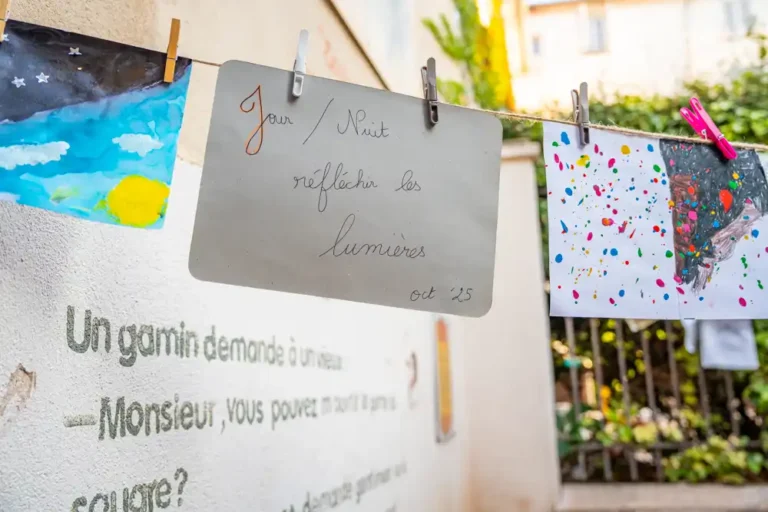 Jour / Nuit
réfléchir les
lumières
oct '25
Un gamin demande à un vieux
— Monsieur, vous pouvez m'ouvrir la porte du
square?
demande